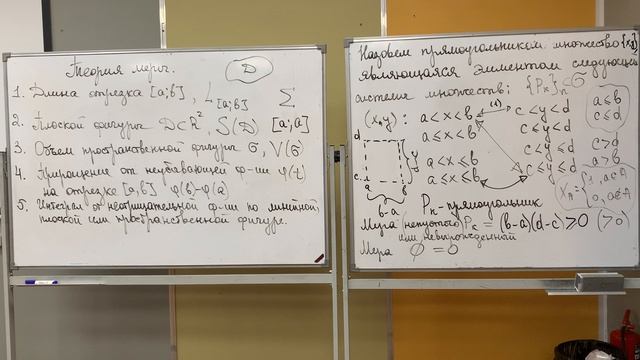 Теория меры.
D
1. Длина отрезка [a;b], L[a;b] Σ
2. Плоской фигуры D⊂R², S(D) [a;a]
3. Объем пространственной фигуры σ, V(σ)
4. Приращение от неубывающей ф-ии φ(t)
на отрезке [a,b] φ(b)-φ(a)
5. Интеграл от неотрицательной ф-ии по линейной,
плоской или пространственной фигуре.
Назовем прямоугольником множество
являющаяся элементом следующей
системы множеств: {Pₙ}
(x,y): a<x<b c<y<d
a≤x<b c≤y<d
a<x≤b c<y≤d
a≤x≤b c≤y≤d
a≤b
c≤d
c>d
a>b
1, a∈A
0, a∉A
d
c
a b
b-a
Pₙ-прямоугольник
Мера (непустого) Pₙ = (b-a)(d-c)≥0 (>0)
или невырожденной
Мера ∅ = 0